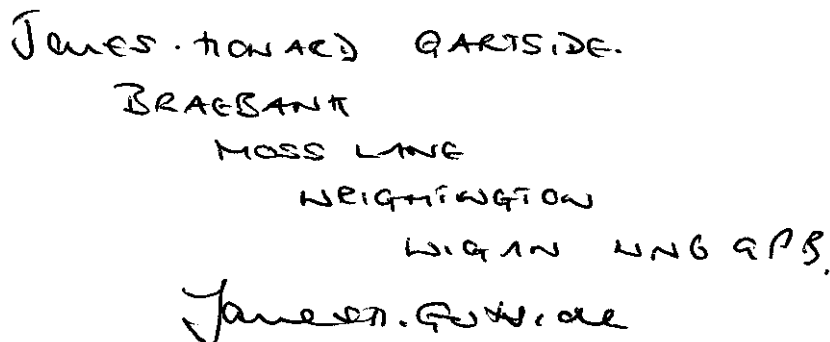 James. HOWARD GARTSIDE.
BRAEBANK
MOSS LANE
WRIGHTINGTON
WIGAN WN6 9PB.
James H. Gartside